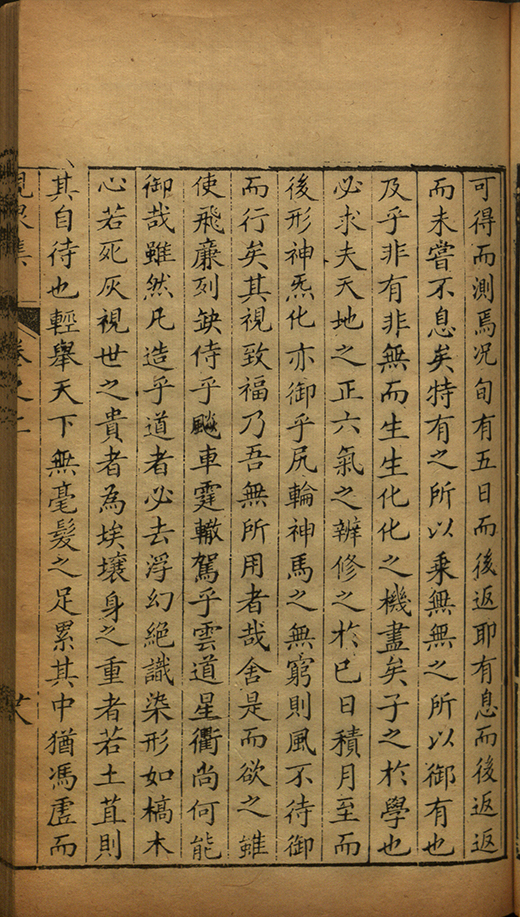 可得而測焉况旬有五日而後返耶有息而後返返
而未嘗不息矣特有之所以乘無無之所以御有也
及乎非有非無而生生化化之機盡矣子之於學也
必求夫天地之正六氣之辨修之於已日積月至而
後形神炁化亦御乎尻輪神馬之無窮則風不待御
而行矣其視致福乃吾無所用者哉舍是而欲之雖
使飛廉列缺侍乎飈車霆轍駕乎雲道星衢尚何能
御哉雖然凡造乎道者必去浮幻絕識染形如槁木
心若死灰視世之貴者為埃壤身之重者若土苴則
其自待也輕舉天下無毫髮之足累其中猶馮虛而
峴泉集 卷之二